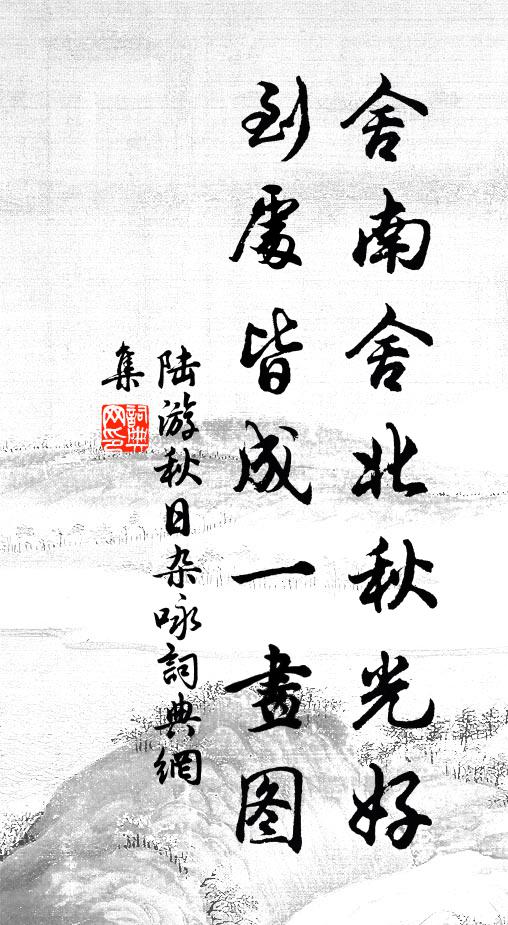 舍南舍北秋光好
到處皆成一畫图
陆游秋日杂咏詞典網
集
詞典网印